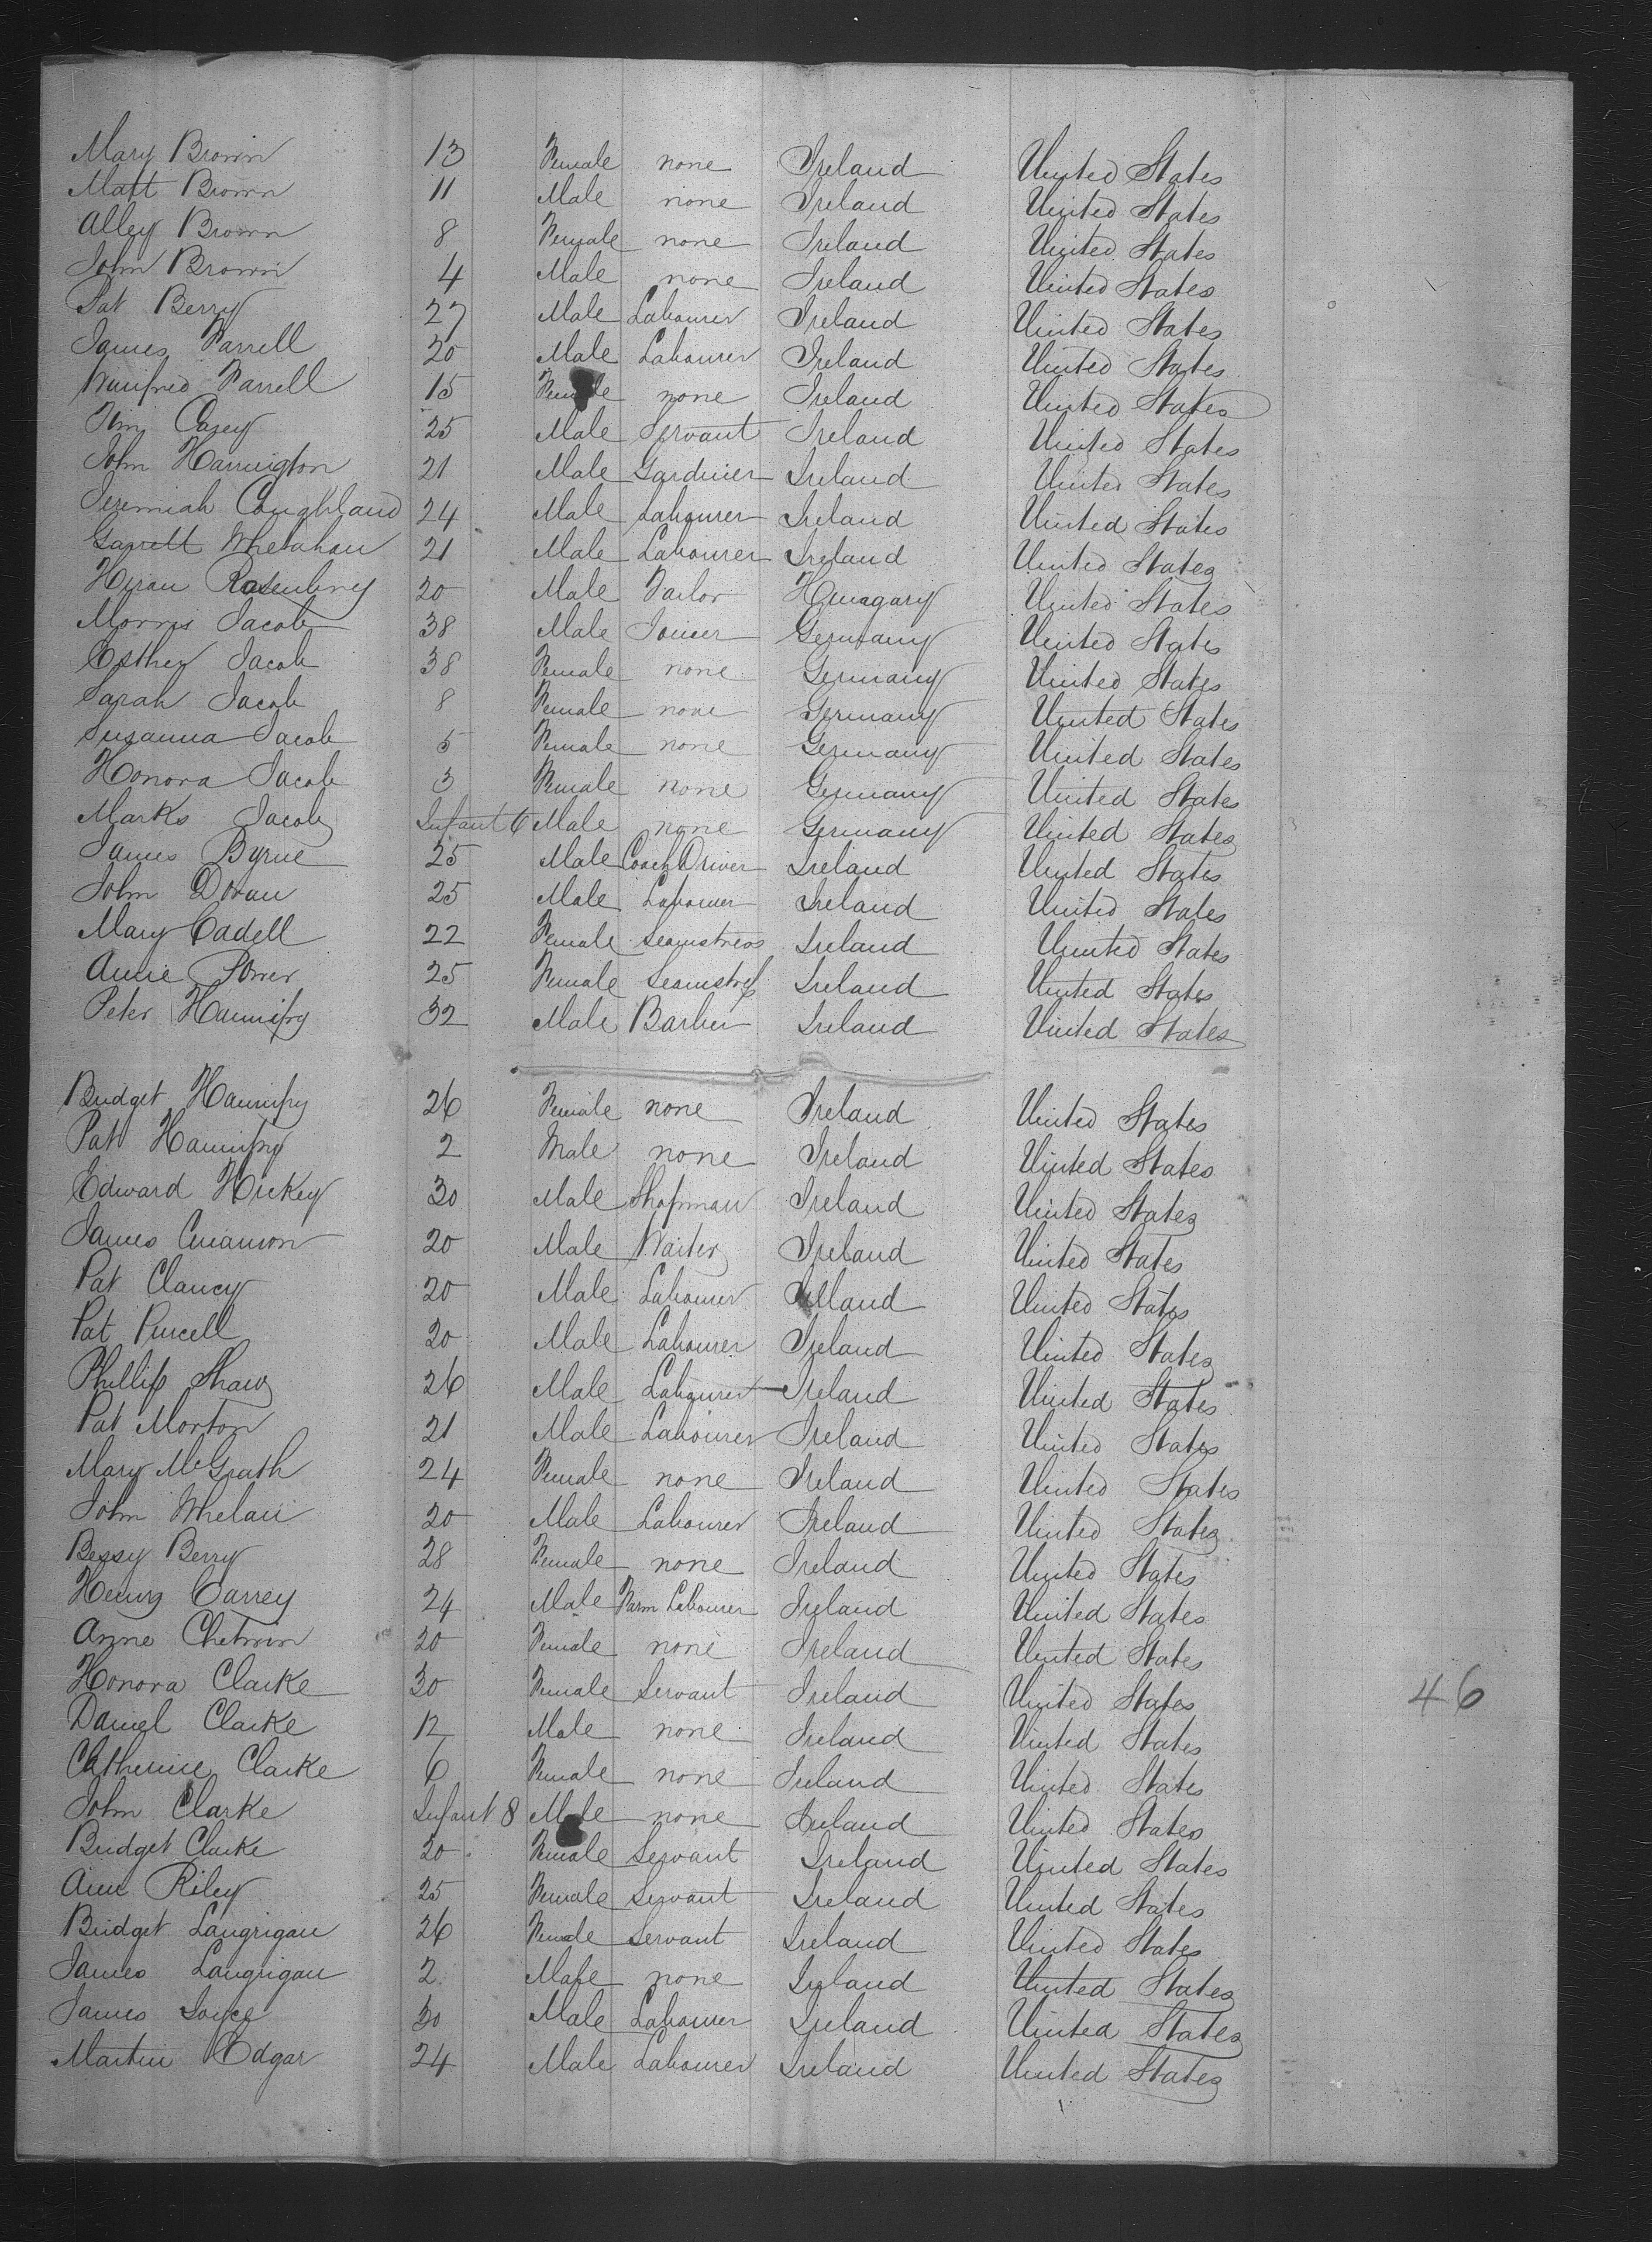 Mary Brown 13 Female none Ireland United States
Matt Brown 11 Male none Ireland United States
Alley Brown 8 Female none Ireland United States
John Brown 4 Male none Ireland United States
Pat Berry 27 Male Labourer Ireland United States
James Farrell 20 Male Labourer Ireland United States
Winifred Farrell 15 Female none Ireland United States
Tim Casey 25 Male Servant Ireland United States
John Harrington 21 Male Gardinier Ireland United States
Jeremiah Coughland 24 Male Labourer Ireland United States
Garrett Whelahan 21 Male Labourer Ireland United States
Rosenberg 20 Male Tailor Hungary United States
Morris Jacob 38 Male Joiner Germany United States
Esther Jacob 38 Female none Germany United States
Sarah Jacob 8 Female none Germany United States
Susanna Jacob 5 Female none Germany United States
Honora Jacob 3 Female none Germany United States
Marks Jacob Infant 6 Male none Germany United States
James Byrne 25 Male Coach Driver Ireland United States
John Doran 25 Male Labourer Ireland United States
Mary Cadell 22 Female Seamstress Ireland United States
Annie Power 25 Female Seamstress Ireland United States
Peter Hannifry 32 Male Barber Ireland United States
Bridget Hannifry 26 Female none Ireland United States
Pat Hannifry 2 Male none Ireland United States
Edward Hickey 30 Male Shopman Ireland United States
James 20 Male Waiter Ireland United States
Pat Clancy 20 Male Labourer Ireland United States
Pat Purcell 20 Male Labourer Ireland United States
Phillip Shaw 26 Male Labourer Ireland United States
Pat Morton 21 Male Labourer Ireland United States
Mary McGrath 24 Female none Ireland United States
John Whelan 20 Male Labourer Ireland United States
Bessy Berry 28 Female none Ireland United States
Henry Carrey 24 Male Farm Labourer Ireland United States
Anne Chetwin 20 Female none Ireland United States
Honora Clarke 30 Female Servant Ireland United States
46
Daniel Clarke 12 Male none Ireland United States
Catherine Clarke 6 Female none Ireland United States
John Clarke Infant 8 Male none Ireland United States
Bridget Clarke 20 Female Servant Ireland United States
Ann Riley 25 Female Servant Ireland United States
Bridget Langrigan 26 Female Servant Ireland United States
James Langrigan 2 Male none Ireland United States
James Joyce 30 Male Labourer Ireland United States
Martin Edgar 24 Male Labourer Ireland United States